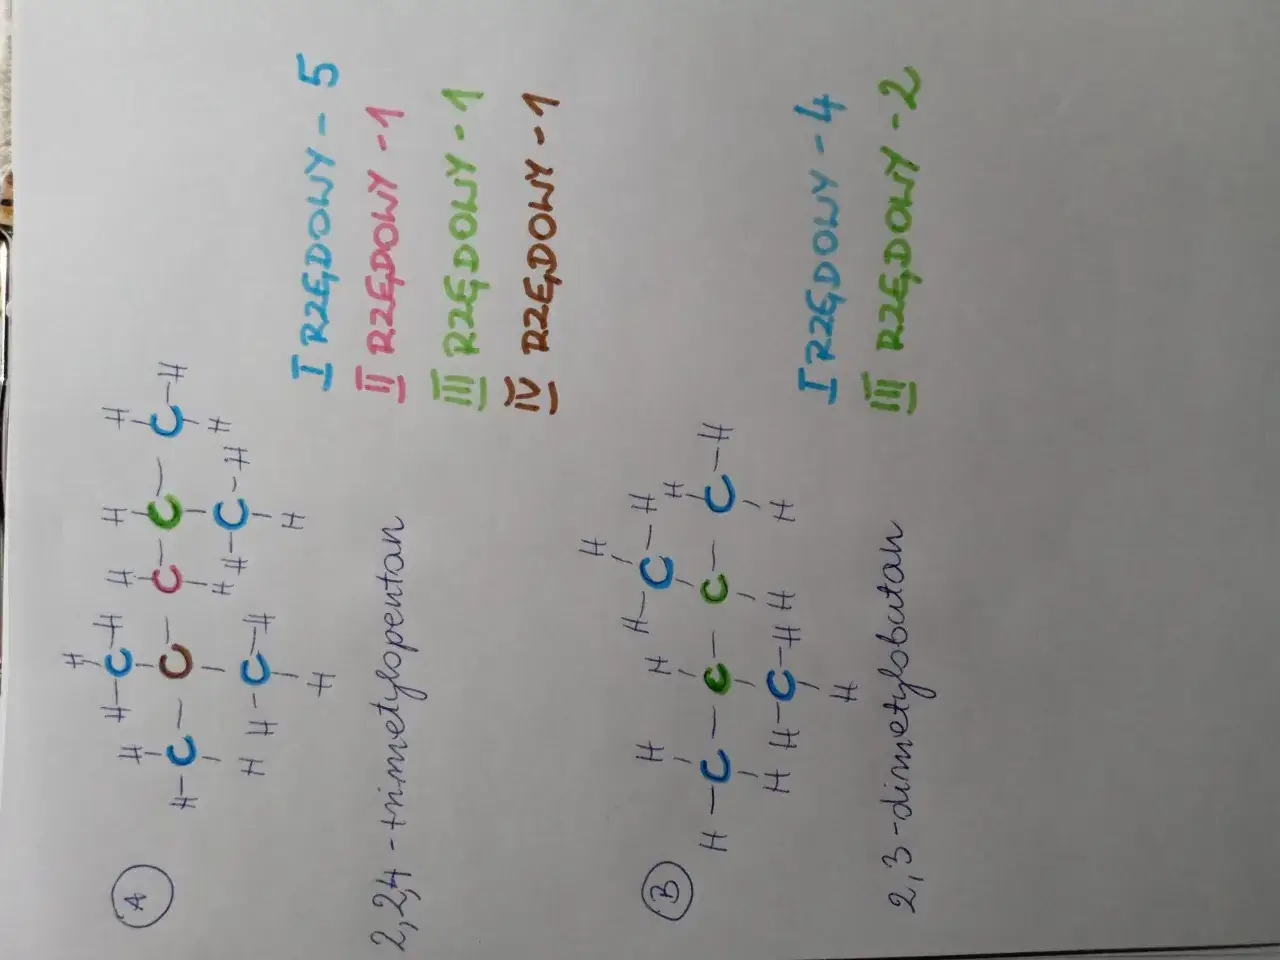 A
H
H H-C-H H H H
H-C-C-C-C-C-H
H H H
H-C-H H-C-H
H
H
I RZĘDOWY - 5
2,2,4 -trimetylopentan
II RZĘDOWY - 1
III RZĘDOWY - 1
IV RZĘDOWY - 1
B
H
H-C-H
H H H
H-C-C-C-C-H
H H-C-H H H
H
I RZĘDOWY - 4
2,3-dimetylobutan
III RZĘDOWY - 2